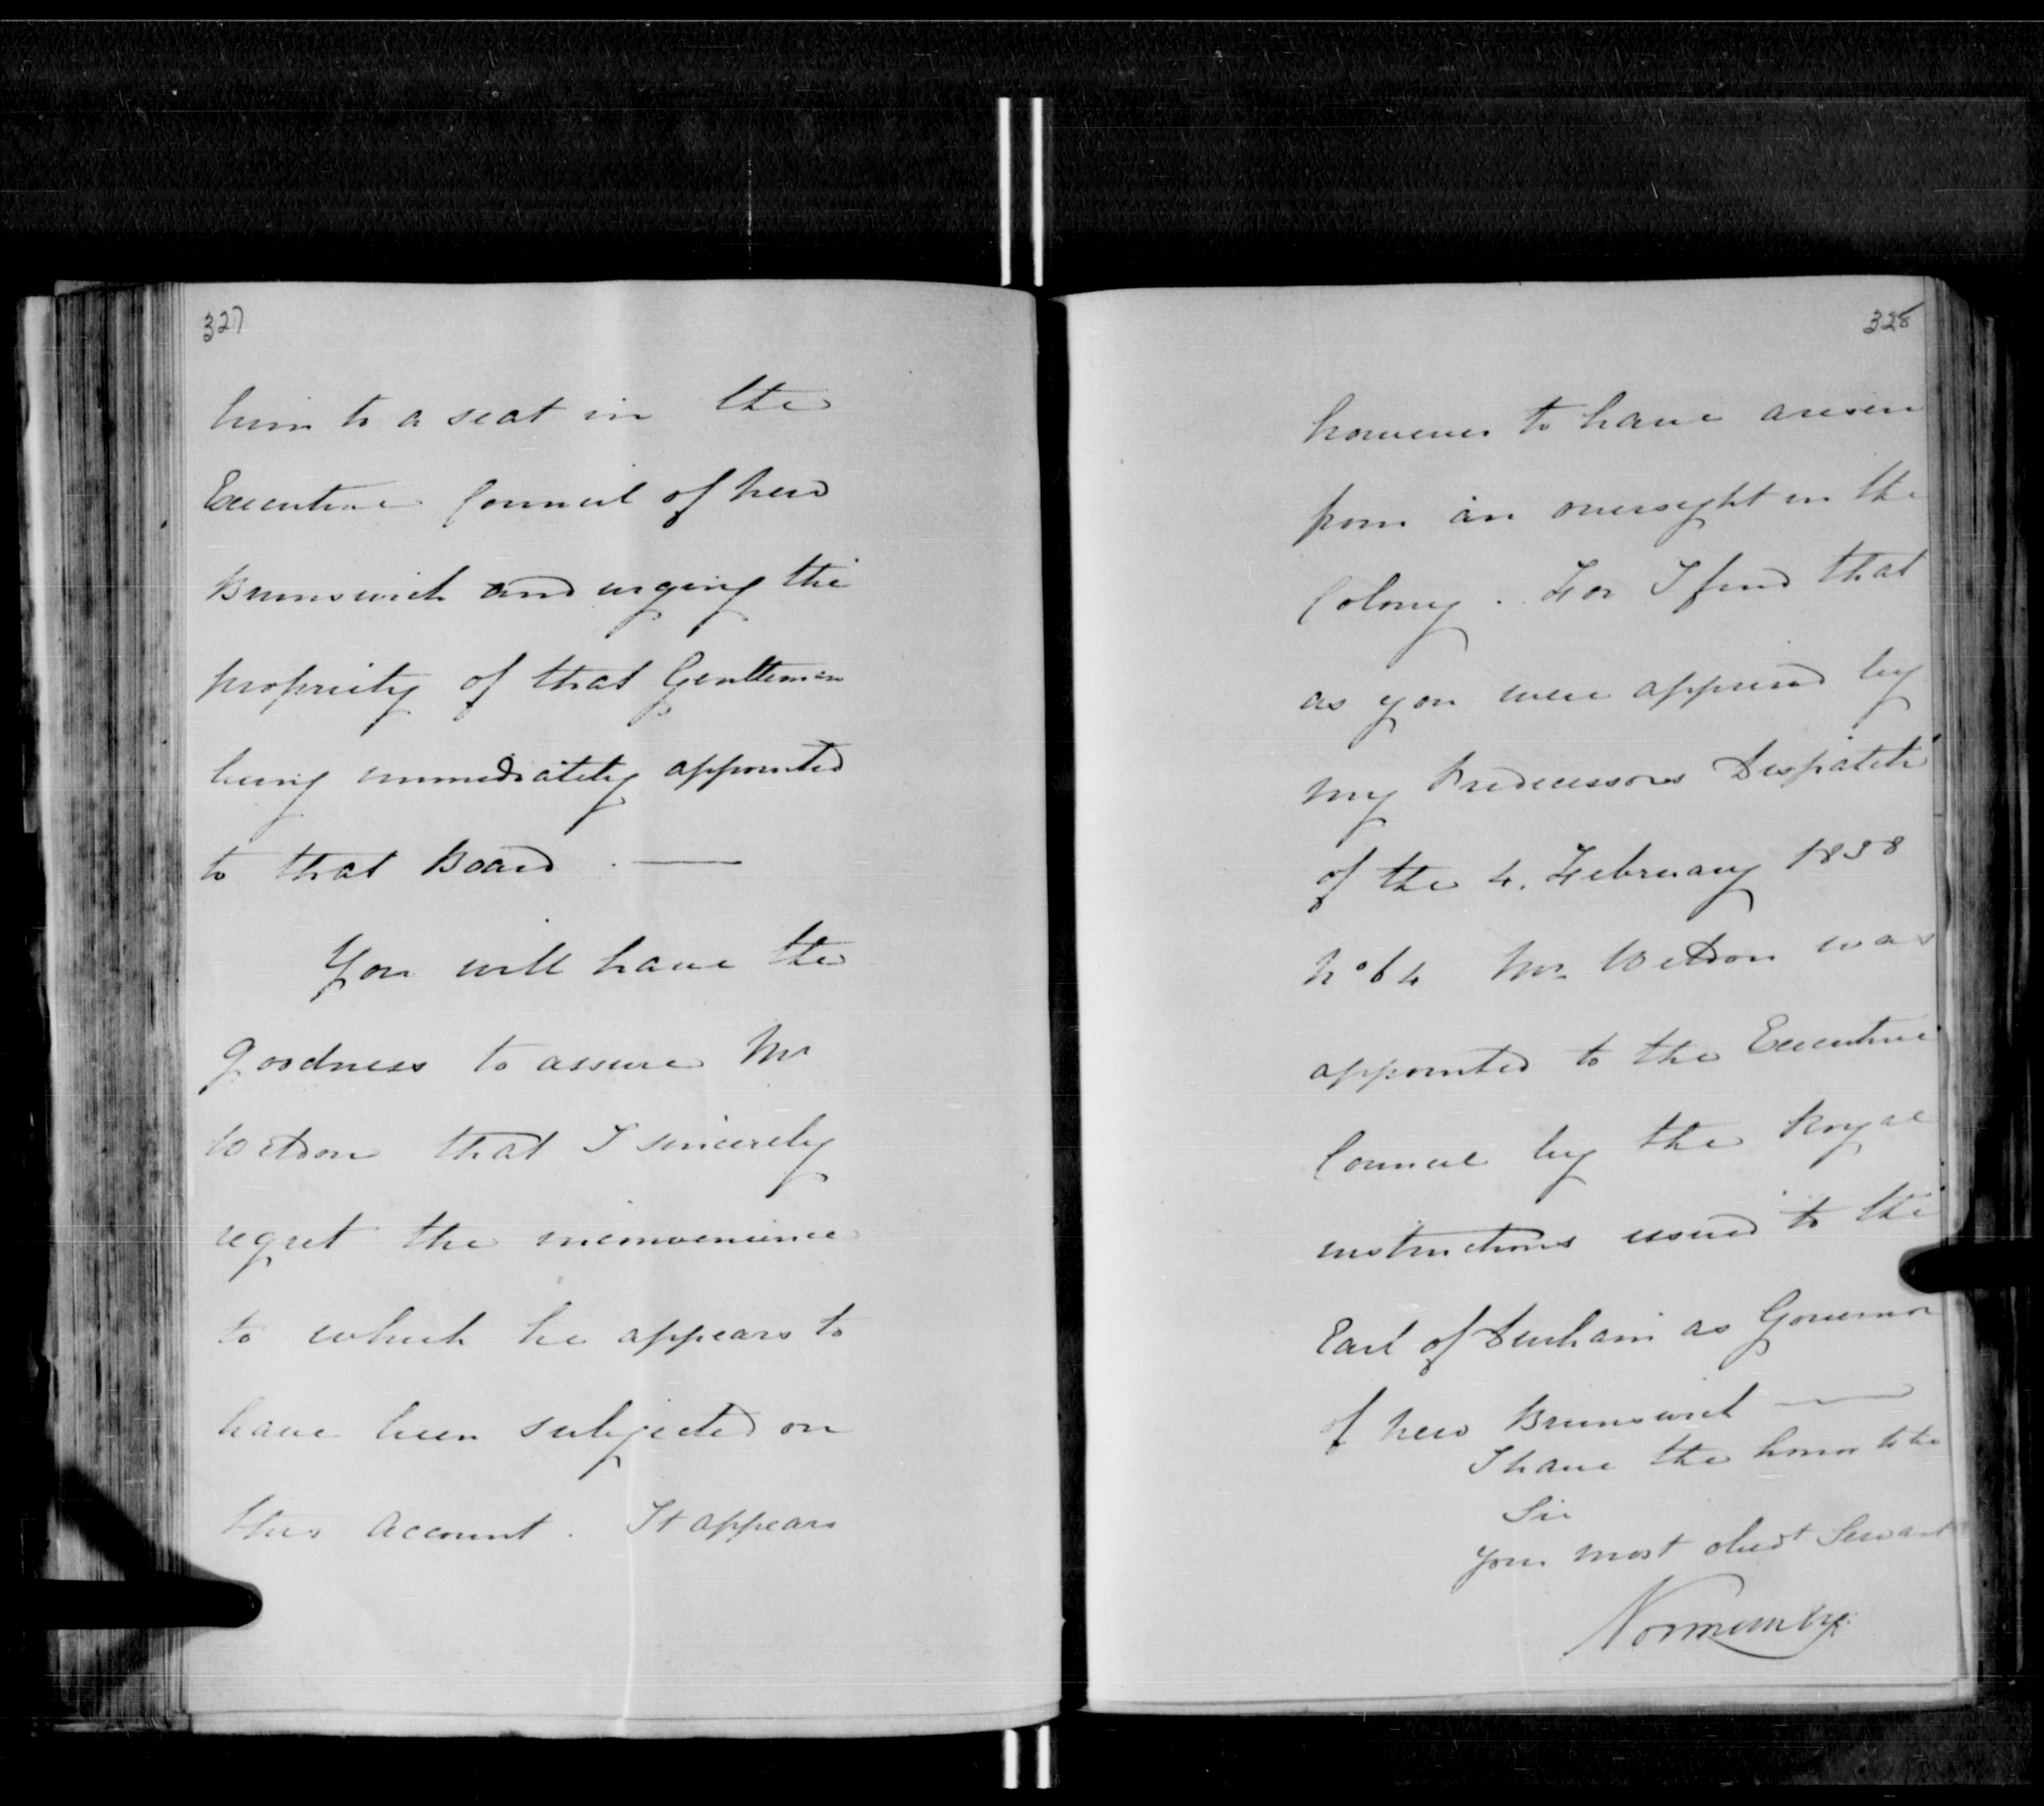 327
him to a seat in the
Executive Council of New
Brunswick and urging the
propriety of that Gentleman
being immediately appointed
to that Board . —
You will have the
goodness to assure Mr
Weldon that I sincerely
regret the inconvenience
to which he appears to
have been subjected on
this account . It appears
328
however to have arisen
from an oversight in the
Colony . For I find that
as you were apprised by
my Predecessors Despatch
of the 4. February 1838
No 64 Mr Weldon was
appointed to the Executive
Council by the Royal
instructions issued to the
Earl of Durham as Governor
of New Brunswick —
I have the honor to be
Sir
Your most obedt Servant
Normanby